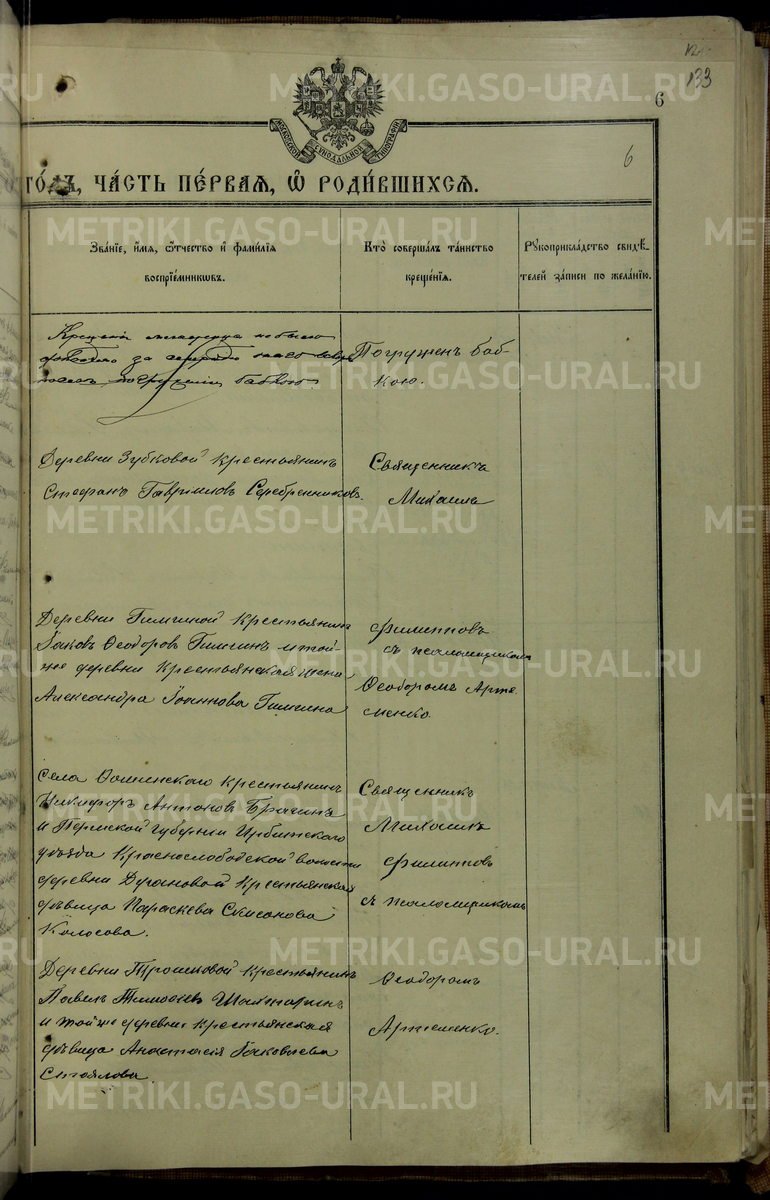 133
6
6
МОСКОВСКОЙ СѴНОДАЛЬНОЙ ТИПОГРАФІИ
го́дъ, ча́сть пе́рваѧ, ѡ҆ роди́вшихсѧ.
Зва́нїе, и҆́мѧ, ѻ҆́тчество и҆ фами́лїѧ
воспрїе́мникѡвъ.
Кто̀ соверша́лъ та́инство
креще́нїѧ.
Рꙋкоприкла́дство свидѣ́-
телей за́писи по жела́нїю.
Крещенія младенца не было
за
погруженія бабкою.
Погруженъ баб-
кою.
Деревни Зубковой крестьянинъ
Стефанъ Гавриловъ Серебренниковъ.
Священникъ
Михаилъ
Деревни крестьянинъ
Іаковъ Ѳеодоровъ и той-
же деревни крестьянская жена
Александра Іоаннова
Филипповъ
съ псаломщикомъ
Ѳеодоромъ Арте-
менко.
Села крестьянинъ
Никифоръ Антоновъ Брагинъ
и Пермской губерніи Ирбитскаго
уѣзда Краснослободской волости
деревни крестьянская
дѣвица Параскева
Колосова.
Священникъ
Михаилъ
Филипповъ
съ псаломщикомъ
Деревни Трошковой крестьянинъ
Павелъ Тимоѳеевъ
и той же деревни крестьянская
дѣвица Анастасія Іаковлева
Ѳеодоромъ
Артеменко.
METRIKI.GASO-URAL.RU